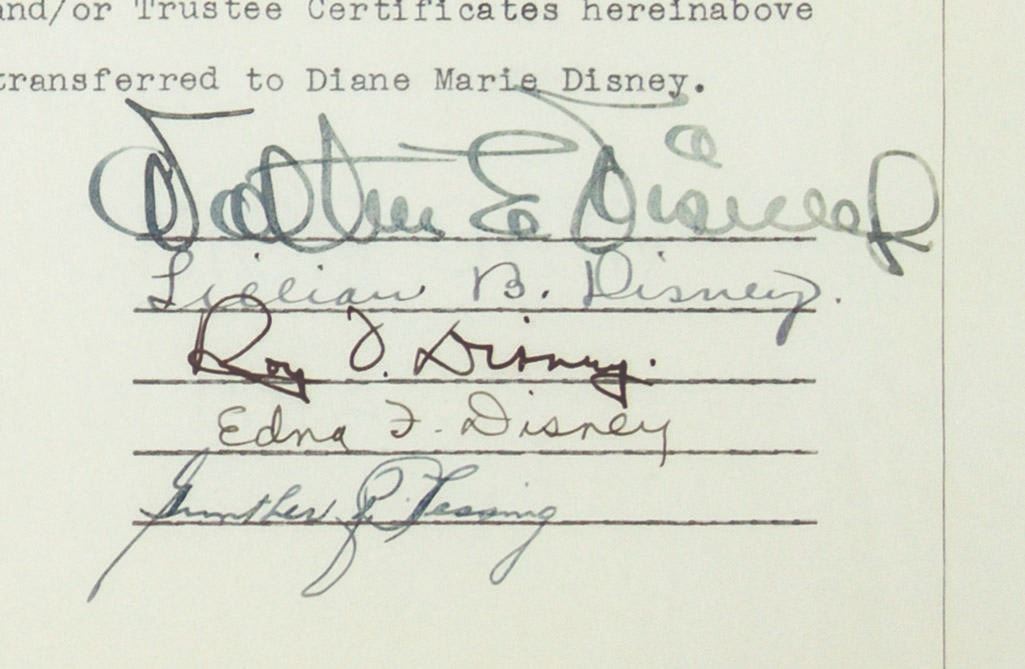 and/or Trustee Certificates hereinabove
transferred to Diane Marie Disney.
Walter E Disney
Lillian B. Disney.
Roy O. Disney.
Edna F. Disney
Gunther R. Lessing